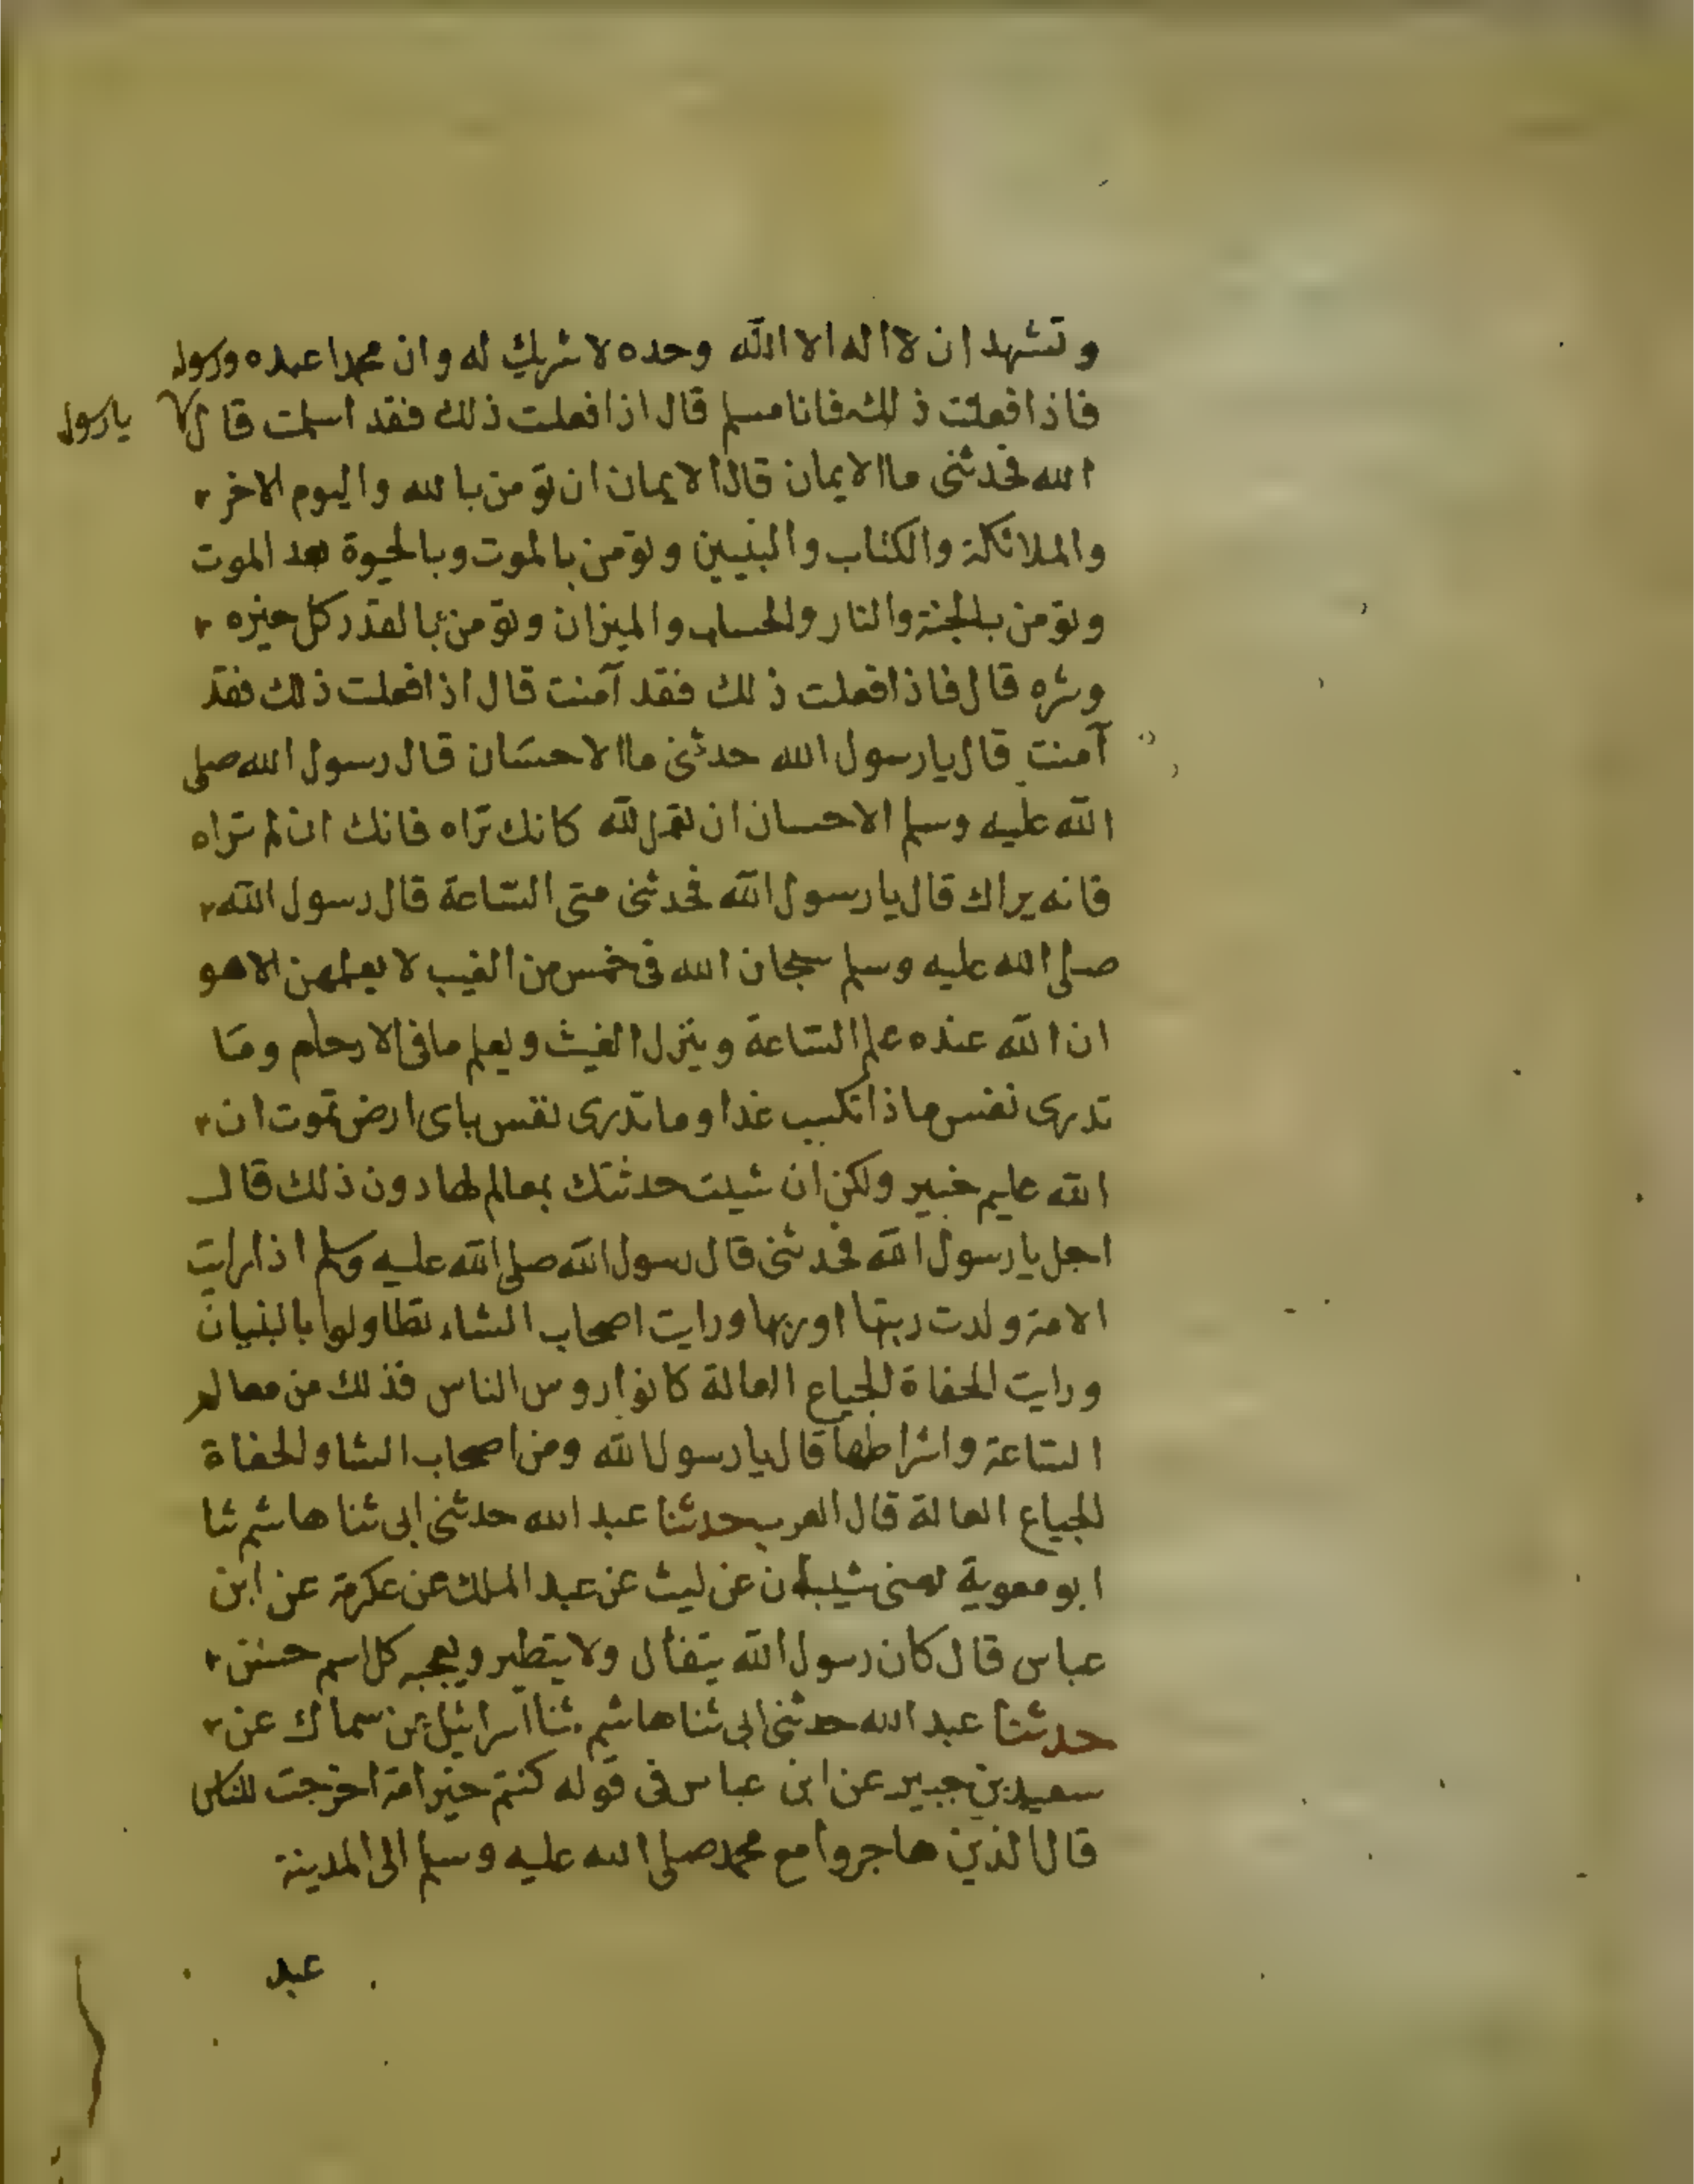 وتشهد ان لا اله الا الله وحده لا شريك له وان محمدا عبده ورسوله
فاذا فعلت ذلك فانا مسلم قال اذا فعلت ذلك فقد اسلمت قال يا رسول
الله فحدثنى ما الايمان قال الايمان ان تومن بالله واليوم الاخر
والملائكة والكتاب والنبيين وتومن بالموت وبالحيوة بعد الموت
وتومن بالجنة والنار والحساب والميزان وتومن بالقدر كل خيره
وشره قال فاذا فعلت ذلك فقد آمنت قال اذا فعلت ذلك فقد
آمنت قال يا رسول الله حدثنى ما الاحسان قال رسول الله صلى
الله عليه وسلم الاحسان ان تعمل لله كانك تراه فانك ان لم تراه
فانه يراك قال يا رسول الله فحدثنى متى الساعة قال رسول الله
صلى الله عليه وسلم سبحان الله فى خمس من الغيب لا يعلمهن الا هو
ان الله عنده علم الساعة وينزل الغيث ويعلم ما فى الارحام وما
تدرى نفس ماذا تكسب غدا وما تدرى نفس باى ارض تموت ان
الله عليم خبير ولكن ان شيت حدثتك بمعالم لها دون ذلك قال
اجل يا رسول الله فحدثنى قال رسول الله صلى الله عليه وسلم اذا رايت
الامة ولدت ربتها او ربها ورايت اصحاب الشاء تطاولوا بالبنيان
ورايت الحفاة الجياع العالة كانوا روس الناس فذلك من معالم
الساعة واشراطها قال يا رسول الله ومن اصحاب الشا والحفاة
الجياع العالة قال العرب حدثنا عبد الله حدثنى ابى ثنا هاشم ثنا
ابو معوية يعنى شيبان عن ليث عن عبد الملك عن عكرمة عن ابن
عباس قال كان رسول الله يتفأل ولا يتطير ويعجبه كل اسم حسن
حدثنا عبد الله حدثنى ابى ثنا هاشم ثنا اسرائيل عن سماك عن
سعيد بن جبير عن ابن عباس فى قوله كنتم خير امة اخرجت للناس
قال الذين هاجروا مع محمد صلى الله عليه وسلم الى المدينة
عبد